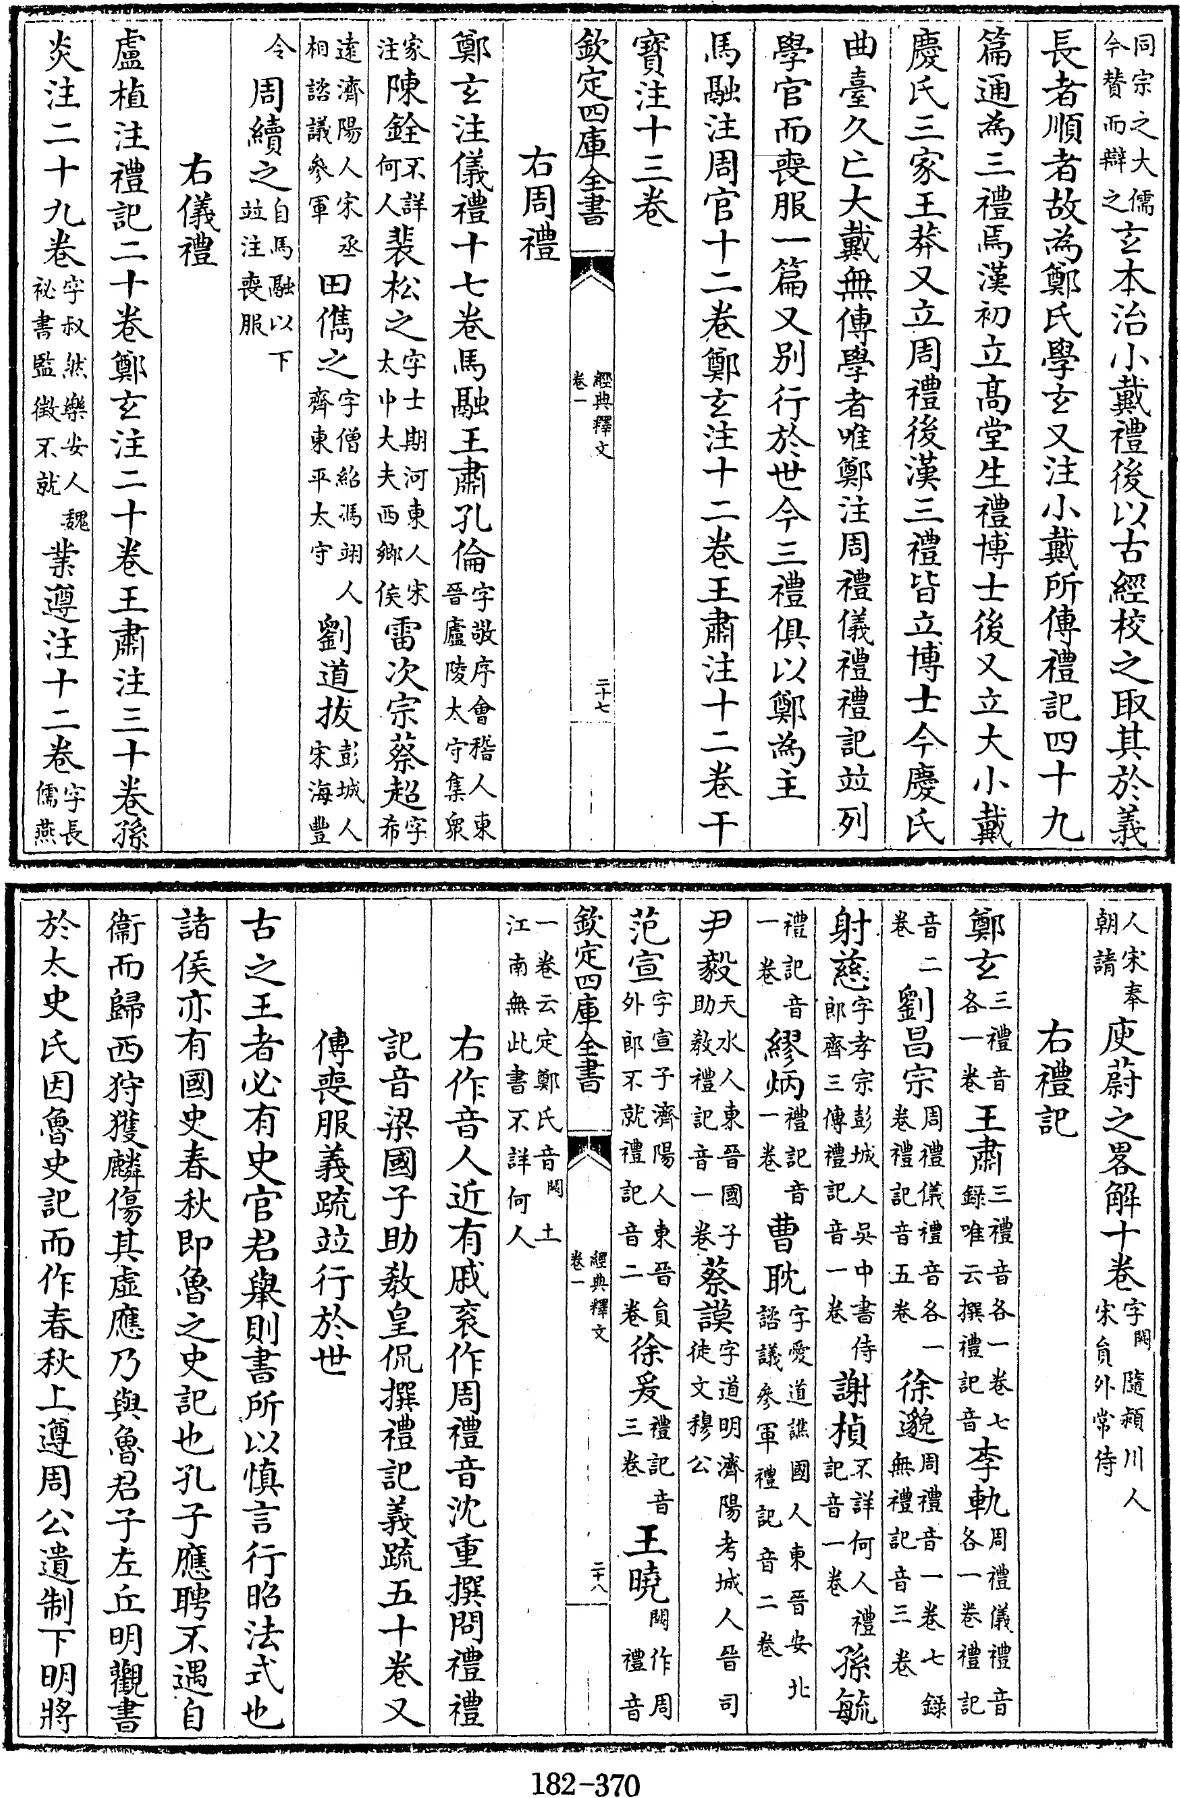 同宗之大儒今贊而辯之玄本治小戴禮後以古經校之取其於義
長者順者故為鄭氏學玄又注小戴所傳禮記四十九
篇通為三禮焉漢初立高堂生禮博士後又立大小戴
慶氏三家王莽又立周禮後漢三禮皆立博士今慶氏
曲臺久亡大戴無傳學者唯鄭注周禮儀禮禮記竝列
學官而喪服一篇又別行於世今三禮俱以鄭為主
馬融注周官十二卷鄭玄注十二卷王肅注十二卷干
寶注十三卷
欽定四庫全書 經典釋文卷一 二十七
右周禮
鄭玄注儀禮十七卷馬融王肅孔倫字敬序會稽人東晉廬陵太守集衆
家注陳銓不詳何人裴松之字士期河東人宋太中大夫西鄉侯雷次宗蔡超字希
遠濟陽人宋丞相諮議參軍田僑之字僧紹馮翊人齊東平太守劉道拔彭城人宋海豐
令周續之自馬融以下竝注喪服
右儀禮
盧植注禮記二十卷鄭玄注二十卷王肅注三十卷孫
炎注二十九卷字叔然樂安人魏祕書監徵不就業遵注十二卷字長儒燕
人宋奉朝請庾蔚之畧解十卷字闕隨潁川人宋員外常侍
右禮記
鄭玄三禮音各一卷王肅三禮音各一卷七錄唯云撰禮記音李軌周禮儀禮音各一卷禮記
音二卷劉昌宗周禮儀禮音各一卷禮記音五卷徐邈周禮音一卷七錄無禮記音三卷
射慈字孝宗彭城人吳中書侍郎齊三傳禮記音一卷謝楨不詳何人禮記音一卷孫毓
禮記音一卷繆炳禮記音一卷曹耽字愛道譙國人東晉安北諮議參軍禮記音二卷
尹毅天水人東晉國子助教禮記音一卷蔡謨字道明濟陽考城人晉司徒文穆公
范宣字宣子濟陽人東晉員外郎不就禮記音二卷徐爰禮記音三卷王曉闕作周禮音
欽定四庫全書 經典釋文卷一 二十八
一卷云定鄭氏音闕土江南無此書不詳何人
右作音人近有戚袞作周禮音沈重撰問禮禮
記音梁國子助教皇侃撰禮記義疏五十卷又
傳喪服義疏竝行於世
古之王者必有史官君舉則書所以慎言行昭法式也
諸侯亦有國史春秋即魯之史記也孔子應聘不遇自
衛而歸西狩獲麟傷其虛應乃與魯君子左丘明觀書
於太史氏因魯史記而作春秋上遵周公遺制下明將
182-370